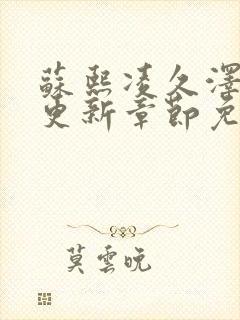 蘇熙凌久澤
更新章節免
莫雲晚